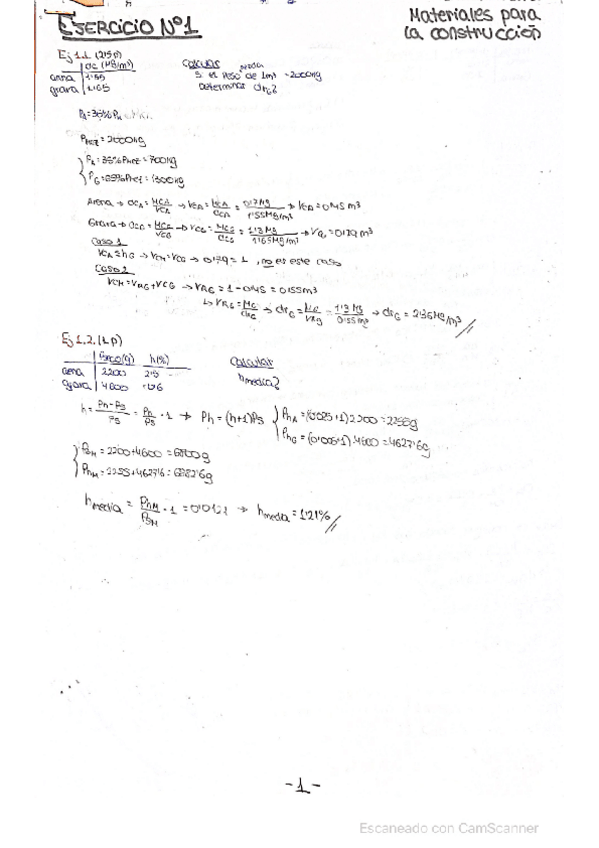 EJERCICIO Nº1
Materiales para
la construcción
Ej 1.1. (2'5p)
dc (Mg/m³)
arena 1'55
grava 1'65
Calcular
Si el peso de 1m³ = 2000kg
Determinar drG?
PA=35%PM
PMEZ = 2000kg
PA=35%PMEZ=700kg
PG=65%PMEZ=1300kg
Arena → dCA = MCA/VCA → VCA = MCA/dCA = 0'7Mg/1'55Mg/m³ → VCA=0'45m³
Grava → dCG = MCG/VCG → VCG = MCG/dCG = 1'3Mg/1'65Mg/m³ → VG=0'79m³
Caso 1
→ VCM=VCG → 0'79 = 1, no es este caso
Caso 2
VCM=VRG+VCG → VRG = 1 - 0'45 = 0'55m³
↳ VRG = MG/drG → drG = MG/VRG = 1'3Mg/0'55m³ → drG = 2'36Mg/m³
Ej 1.2. (1p)
Seco(g) h(%)
arena 2200 2'5
grava 4600 0'6
Calcular
hmedia?
h = Ph-Ps/Ps = Ph/Ps - 1 → Ph = (h+1)Ps
PhA = (0'025+1)2200=2255g
PhG = (0'006+1)·4600=4627'6g
PSM = 2200+4600=6800g
PhM = 2255+4627'6=6882'6g
hmedia = PhM/PSM - 1 = 0'0121 → hmedia=1'21%
-1-
Escaneado con CamScanner